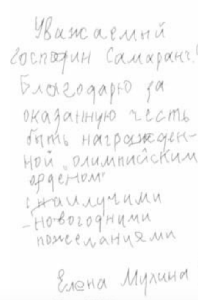 Уважаемый
господин Самаранч!
Благодарю за
оказанную честь
быть награжден-
ной "олимпийским
орденом"
с наилучшими
- новогодними
пожеланиями
Елена Мухина